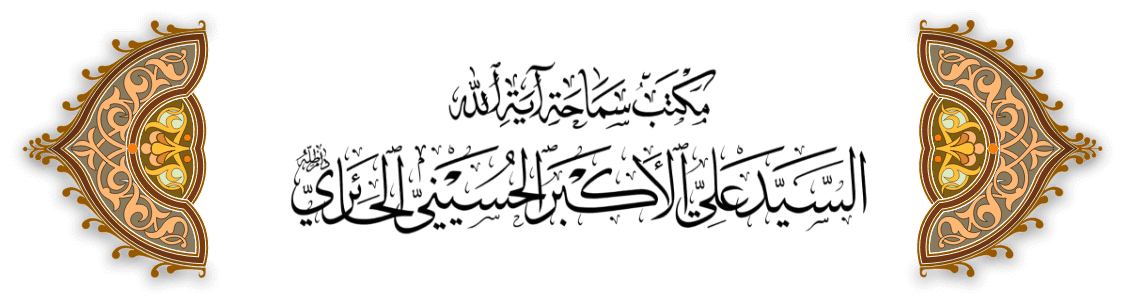 مكتب سماحة آية الله
السيد علي الأكبر الحسيني الحائري دام ظله